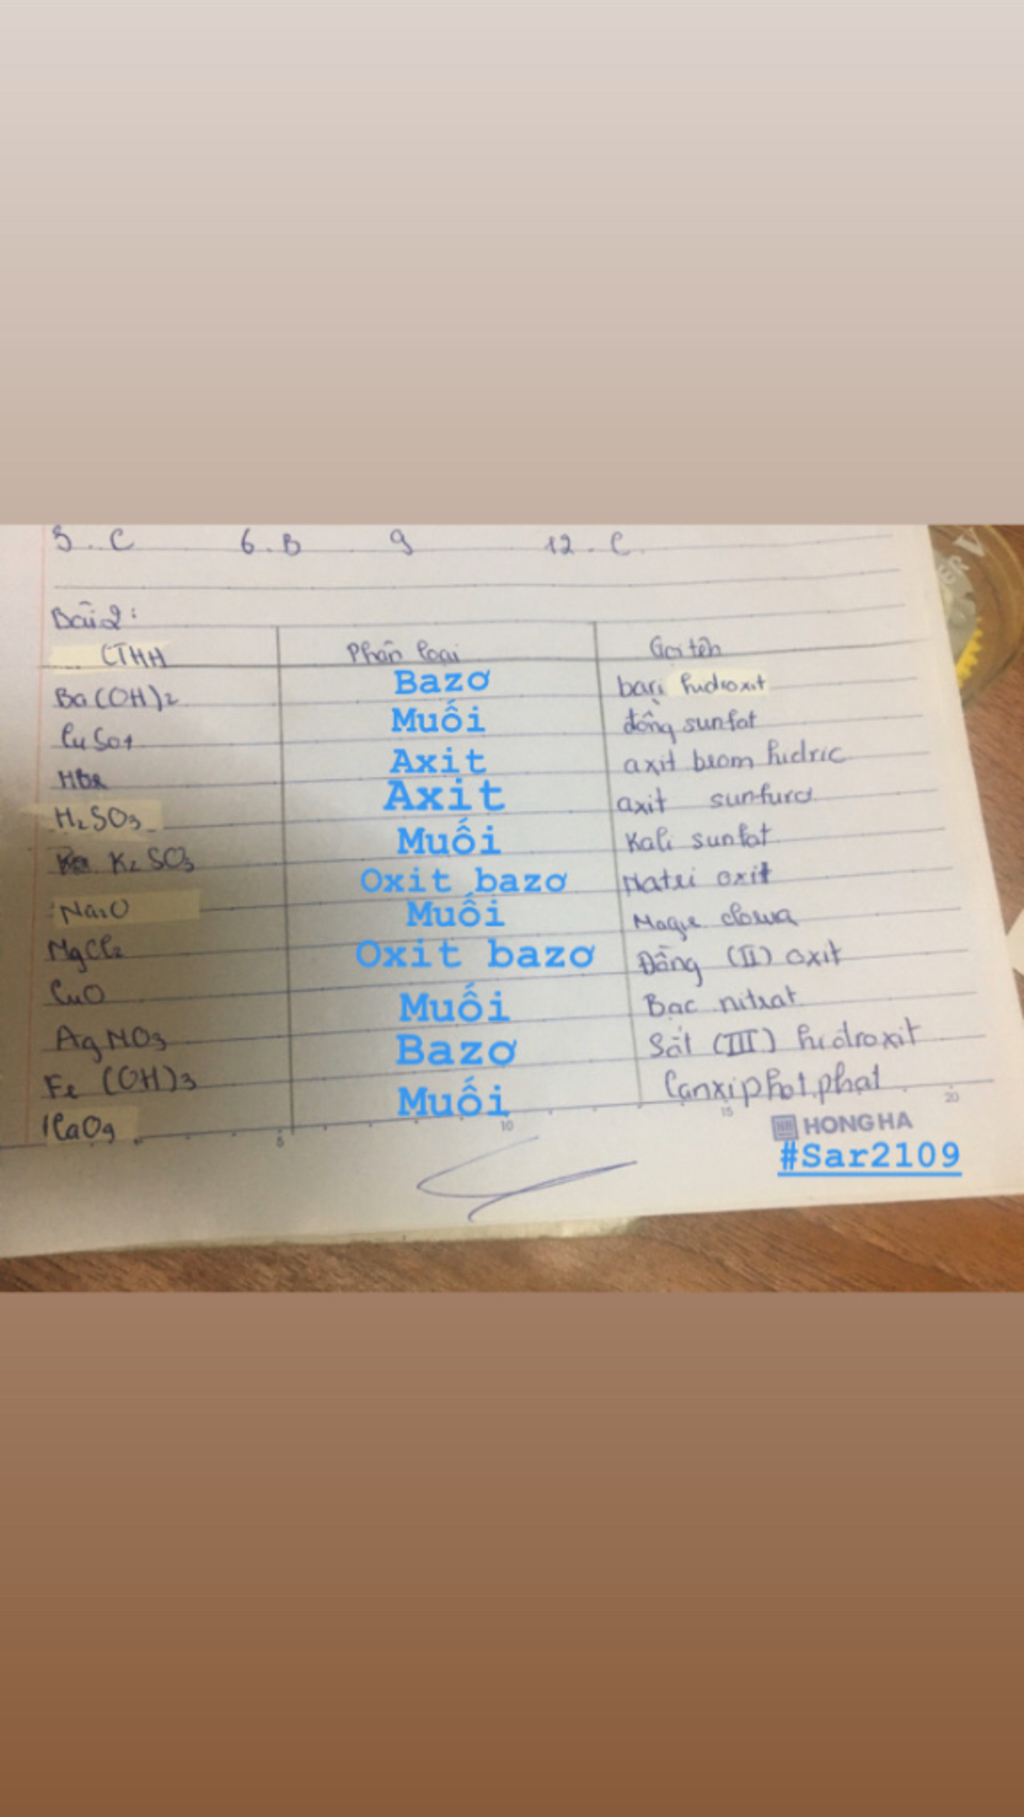 5. C 6. B 9 12. C.
Bài 2:
CTHH Phân loại Gọi tên
Ba(OH)2 Bazơ bari hidroxit
CuSO4 Muối đồng sunfat
HBr Axit axit brom hidric
H2SO3 Axit axit sunfurơ
K2SO3 Muối Kali sunfat
Na2O Oxit bazơ Natri oxit
MgCl2 Muối Magie clorua
CuO Oxit bazơ Đồng (II) oxit
AgNO3 Muối Bạc nitrat
Fe(OH)3 Bazơ Sắt (III) hidroxit
Muối Canxi photphat
5 10 15 20
HONG HA
#Sar2109